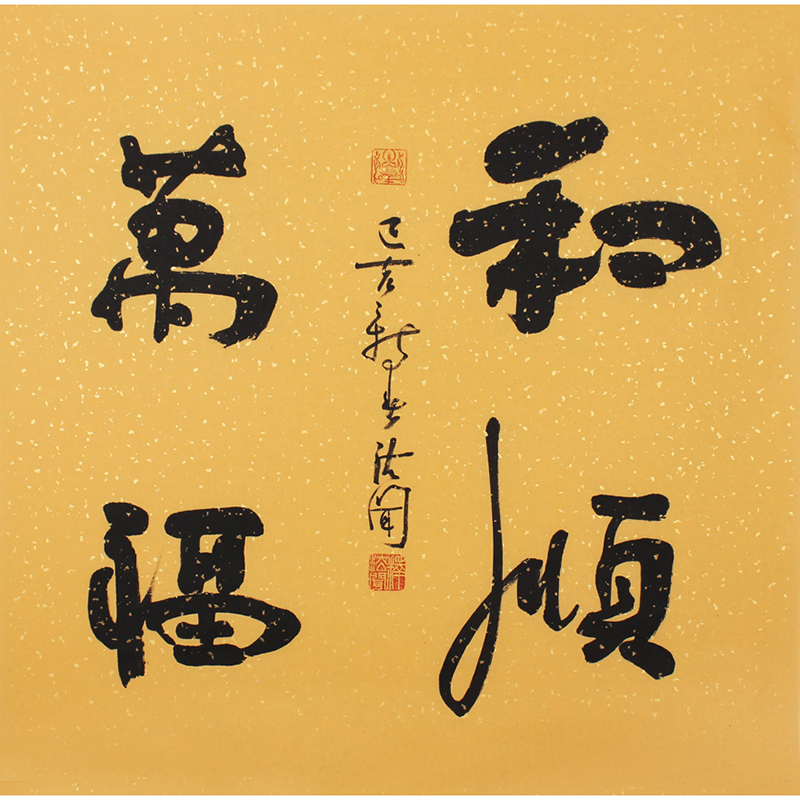 和順
萬福
己亥新春法聞